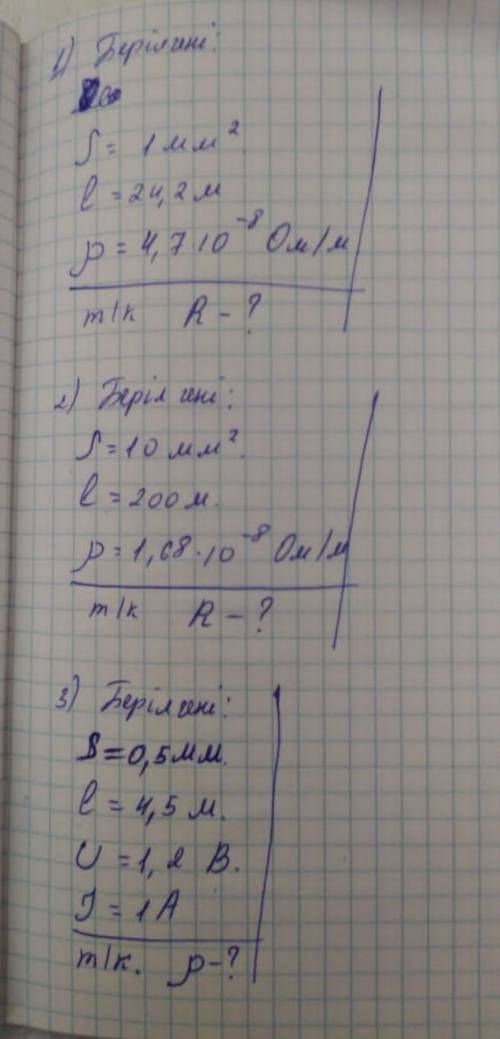 1) Берілгені:
S = 1 мм²
l = 24,2 м
ρ = 4,7·10⁻⁸ Ом/м
т/к R - ?
2) Берілгені:
S = 10 мм².
l = 200 м.
ρ = 1,68·10⁻⁸ Ом/м
т/к R - ?
3) Берілгені:
S = 0,5 мм.
l = 4,5 м.
U = 1,2 В.
J = 1 А
т/к. ρ - ?